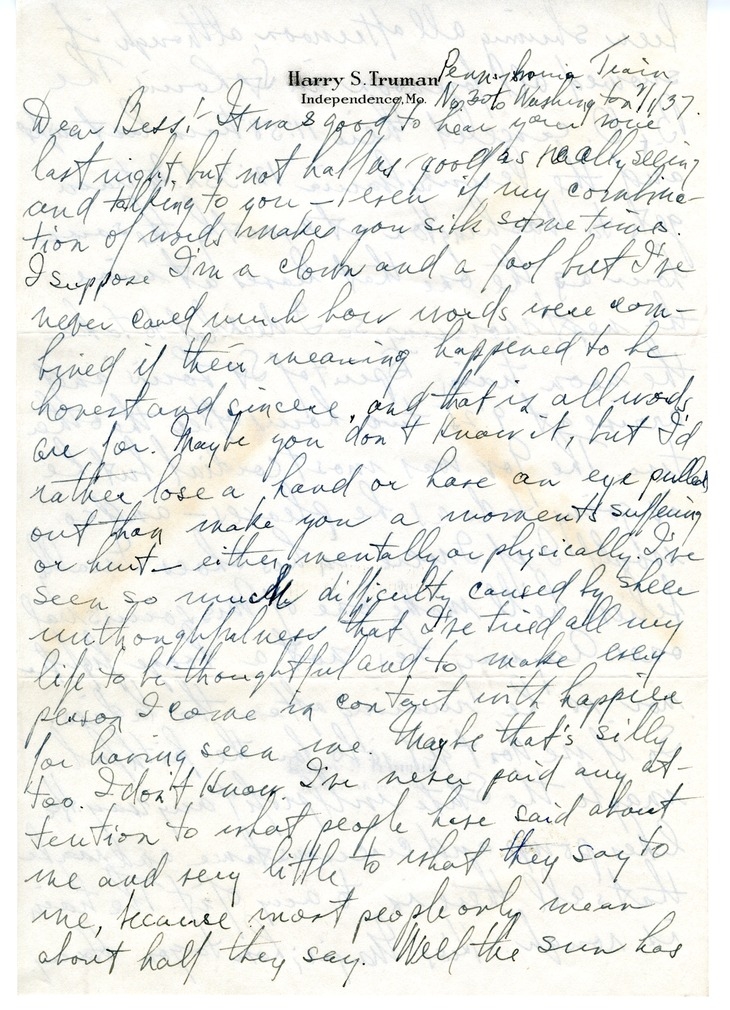 Harry S. Truman
Independence, Mo.
Pennsylvania Train
No 30 to Washington 7/1/37.
Dear Bess:- It was good to hear your voice
last night but not half as good as really seeing
and talking to you — even if my combina-
tion of words makes you sick sometimes.
I suppose I'm a clown and a fool but I've
never cared much how words were com-
bined if their meaning happened to be
honest and sincere, and that is all words
are for. Maybe you don't know it, but I'd
rather lose a hand or have an eye pulled
out than make you a moments suffering
or hurt — either mentally or physically. I've
seen so much difficulty caused by sheer
unthoughfulness that I've tried all my
life to be thoughtful and to make every
person I come in contact with happier
for having seen me. Maybe that's silly
too. I don't know I've never paid any at-
tention to what people have said about
me and very little to what they say to
me, because most people only mean
about half they say. Well the sun has